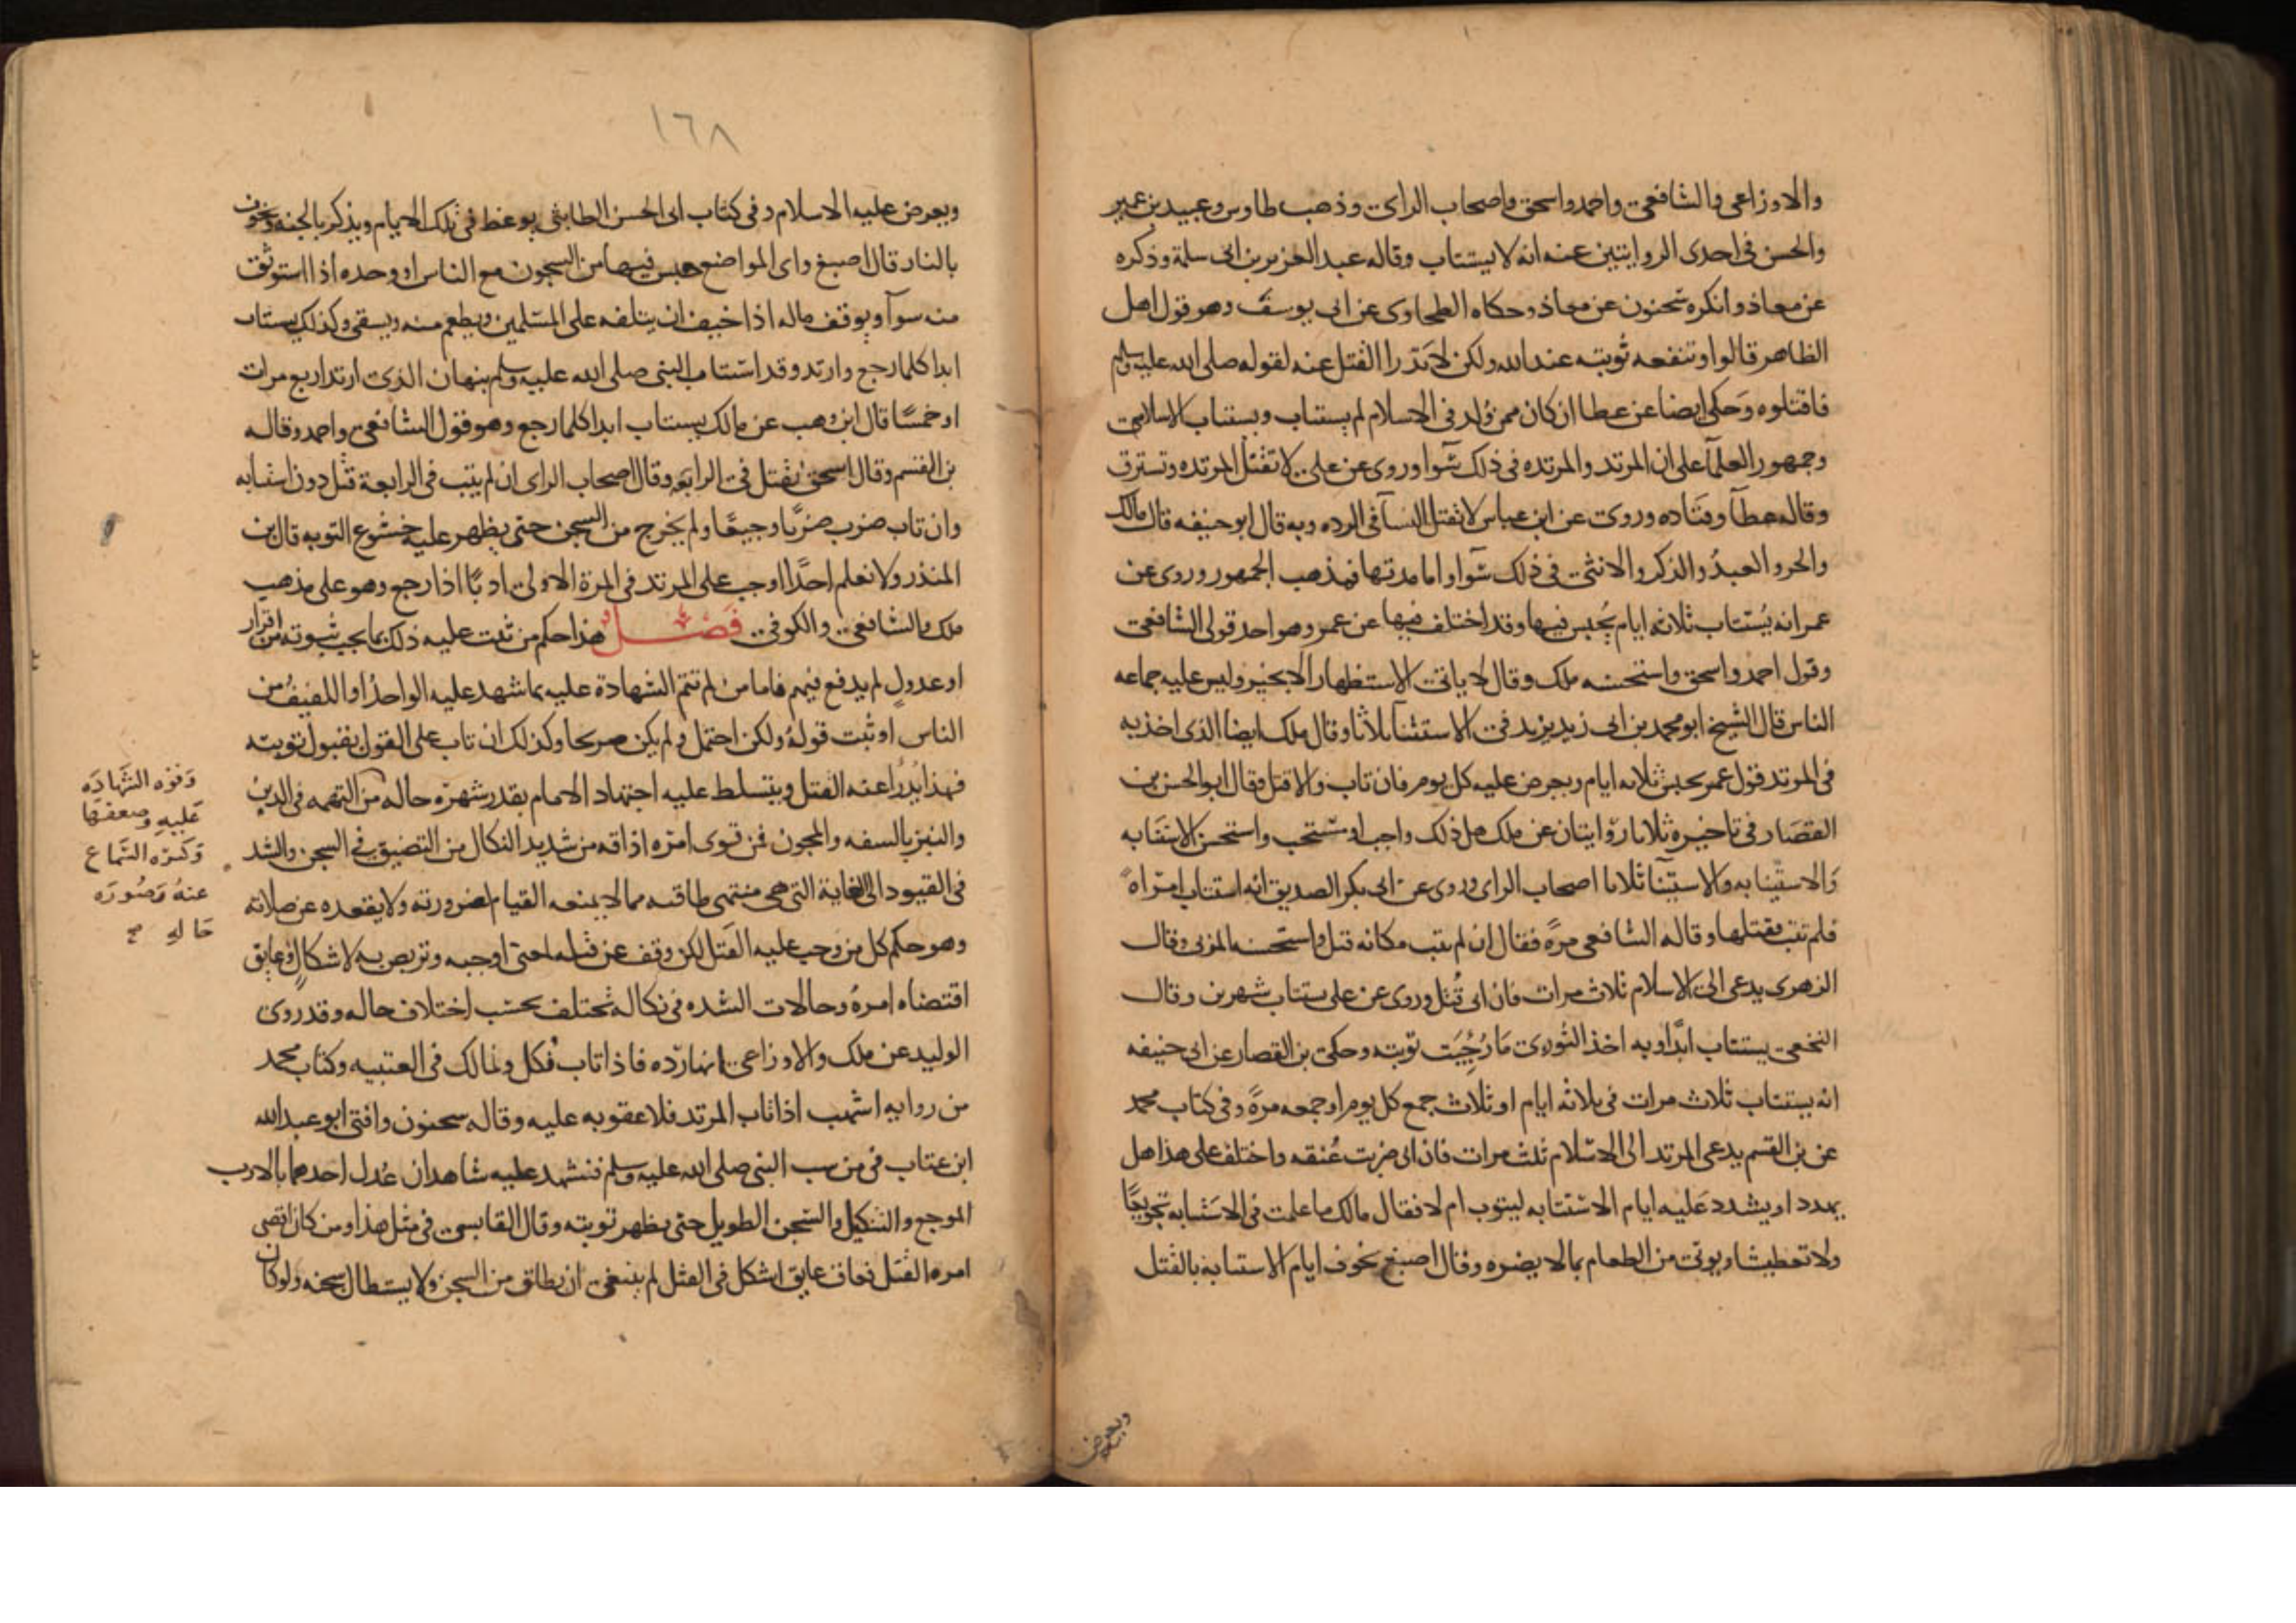 والاوزاعى والشافعى واحمد واسحق واصحاب الراى وذهب طاوس وعبيد بن عمير
والحسن فى احدى الروايتين عنه انه لا يستتاب وقاله عبد العزيز بن ابى سلمة وذكره
عن معاذ وانكره سحنون عن معاذ وحكاه الطحاوى عن ابى يوسف وهو قول اهل
الظاهر قالوا وتنفعه توبته عند الله ولكن لا تدرا القتل عنه لقوله صلى الله عليه وسلم
فاقتلوه وحكى ايضا عن عطا ان كان ممن ولد فى الاسلام لم يستتاب ويستتاب الاسلامى
وجمهور العلمآ على ان المرتد والمرتده فى ذلك سوآ وروى عن على لا تقتل المرتده وتسترق
وقاله عطآ وقتاده وروى عن ابن عباس لا تقتل النسآ فى الرده وبه قال ابو حنيفه قال مالك
والحر والعبد والذكر والانثى فى ذلك سوآ واما مدتها فمذهب الجمهور وروى عن
عمر انه يستتاب ثلاثه ايام يحبس فيها وقد اختلف فيها عن عمر وهو احد قولى الشافعى
وقول احمد واسحق واستحسنه ملك وقال لا ياتى الاستظهار الا بخير وليس عليه جماعه
الناس قال الشيخ ابو محمد بن ابى زيد يريد فى الاستثنآ ثلاثا وقال ملك ايضا الذى اخذ به
فى المرتد قول عمر يحبس ثلاثه ايام ويعرض عليه كل يوم فان تاب والا قتل وقال ابو الحسن بن
القصار فى تاخيره ثلاثا روايتان عن ملك هل ذلك واجب او مستحب واستحسن الاستتابه
والاستيتابه والاستينآ ثلاثا اصحاب الراى وروى عن ابى بكر الصديق انه استتاب امراه
فلم تتب فقتلها وقاله الشافعى مرة فقال ان لم يتب مكانه قتل واستحسنه المزنى وقال
الزهرى يدعى الى الاسلام ثلاث مرات فان ابى قتل وروى عن على يستتاب شهرين وقال
النخعى يستتاب ابدا وبه اخذ الثورى ما رجيت توبته وحكى بن القصار عن ابى حنيفه
انه يستتاب ثلاث مرات فى ثلاثه ايام او ثلاث جمع كل يوم او جمعه مرة وفى كتاب محمد
عن بن القسم يدعى المرتد الى الاسلام ثلث مرات فان ابى ضربت عنقه واختلف على هذا هل
يهدد او يشدد عليه ايام الاستتابه ليتوب ام لا فقال مالك ما علمت فى الاستتابه تجويعا
ولا تعطيشا ويوتى من الطعام بما لا يضره وقال اصبغ يخوف ايام الاستتابة بالقتل
ويعرض
١٦٨
ويعرض عليه الاسلام وفى كتاب ابى الحسن الطابثى يوعظ فى تلك الايام ويذكر بالجنه ويخوف
بالنار قال اصبغ واى المواضع حبس فيها من السجون مع الناس او وحده اذا استوثق
منه سوآ ويوقف ماله اذا خيف ان يتلفه على المسلمين ويطعم منه ويسقى وكذلك يستتاب
ابدا كلما رجع وارتد وقد استتاب النبى صلى الله عليه وسلم بنهان الذى ارتد اربع مرات
او خمسا قال ابن وهب عن مالك يستتاب ابدا كلما رجع وهو قول الشافعى واحمد وقاله
بن القسم وقال اسحق يقتل فى الرابعه وقال اصحاب الراى ان لم يتب فى الرابعة قتل دون استتابه
وان تاب ضرب ضربا وجيعا ولم يخرج من السجن حتى يظهر عليه خشوع التوبه قال بن
المنذر ولا نعلم احدا اوجب على المرتد فى المرة الاولى ادبا اذا رجع وهو على مذهب
ملك والشافعى والكوفى فصل هذا حكم من ثبت عليه ذلك بما يجب ثبوته من اقرار
او عدول لم يدفع فيهم فاما من لم تتم الشهادة عليه بما شهد عليه الواحد او اللفيف من
الناس او ثبت قوله ولكن احتمل ولم يكن صريحا وكذلك ان تاب على القول بقبول توبته
فهذا يدرا عنه القتل ويتسلط عليه اجتهاد الامام بقدر شهرة حاله من التهمه فى الدين
والنبز بالسفه والمجون فمن قوى امره اذاقه من شديد النكال من التضييق فى السجن والشد
فى القيود الى الغاية التى هى منتهى طاقته مما لا يمنعه القيام لضرورته ولا يقعده عن صلاته
وهو حكم كل من وجب عليه القتل لكن وقف عن قتله لمعنى اوجبه وتربص به لاشكال وعايق
اقتضاه امره وحالات الشده فى نكاله تختلف بحسب اختلاف حاله وقد روى
الوليد عن ملك والاوزاعى انها رده فاذا تاب نكل ولمالك فى العتبيه وكتاب محمد
من روايه اشهب اذا تاب المرتد فلا عقوبه عليه وقاله سحنون وافتى ابو عبد الله
ابن عتاب فى من سب النبى صلى الله عليه وسلم فشهد عليه شاهدان عدل احدهما بالادب
الموجع والتنكيل والسجن الطويل حتى يظهر توبته وقال القابسى فى مثل هذا ومن كان اقصى
امره القتل فعاق عايق اشكل فى القتل لم ينبغى ان يطلق من السجن ولا يستطال سجنه ولو كان
وقوه الشهاده
عليه وضعفها
وكثره السماع
عنه وصوره
حاله صح